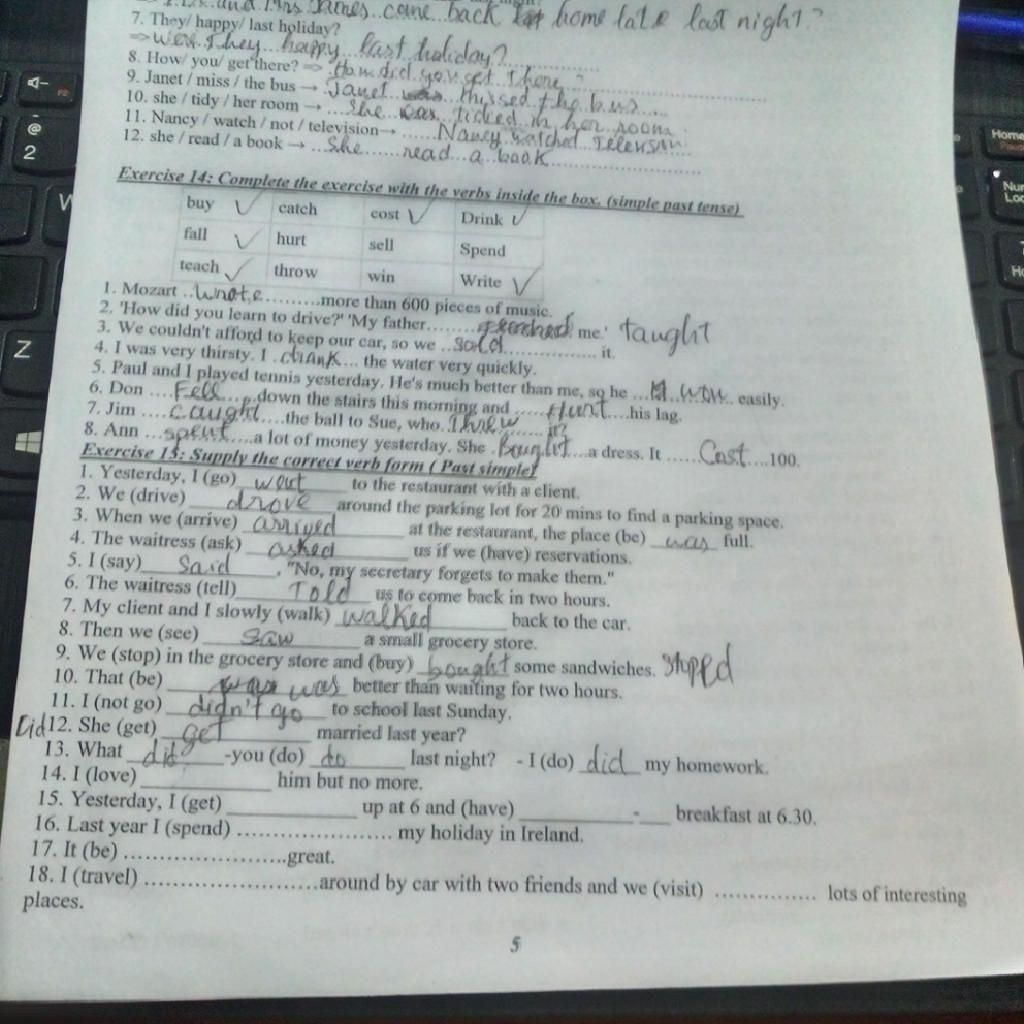 and Mrs James come back home late last night?
7. They/ happy/ last holiday?
=> Were They happy last holiday?
8. How/ you/ get there? => How did you get There?
9. Janet / miss / the bus → Janet was missed the bus
10. she / tidy / her room → She was tidied in her room
11. Nancy / watch / not / television→ Nancy watched Television
12. she / read / a book → She read a book
Exercise 14: Complete the exercise with the verbs inside the box. (simple past tense)
buy ✓ catch cost ✓ Drink ✓
fall ✓ hurt sell Spend
teach ✓ throw win Write ✓
1. Mozart ..wrote..........more than 600 pieces of music.
2. 'How did you learn to drive?' 'My father........ me.' taught
3. We couldn't afford to keep our car, so we ..sold............... it.
4. I was very thirsty. I .drank... the water very quickly.
5. Paul and I played tennis yesterday. He's much better than me, so he ... won.. easily.
6. Don ....Fell.....down the stairs this morning and .....Hurt...his lag.
7. Jim ....caught....the ball to Sue, who.Threw..... it?
8. Ann ...spent....a lot of money yesterday. She .Bought...a dress. It ......Cost....100.
Exercise 15: Supply the correct verb form ( Past simple)
1. Yesterday, I (go) went to the restaurant with a client.
2. We (drive) drove around the parking lot for 20 mins to find a parking space.
3. When we (arrive) arrived at the restaurant, the place (be) was full.
4. The waitress (ask) asked us if we (have) reservations.
5. I (say) said, "No, my secretary forgets to make them."
6. The waitress (tell) Told us to come back in two hours.
7. My client and I slowly (walk) walked back to the car.
8. Then we (see) saw a small grocery store.
9. We (stop) in the grocery store and (buy) bought some sandwiches. stopped
10. That (be) was better than waiting for two hours.
11. I (not go) didn't go to school last Sunday.
Did 12. She (get) get married last year?
13. What did -you (do) do last night? - I (do) did my homework.
14. I (love) ____________ him but no more.
15. Yesterday, I (get) ____________ up at 6 and (have) ___________-___ breakfast at 6.30.
16. Last year I (spend) ...................... my holiday in Ireland.
17. It (be) .......................great.
18. I (travel) ........................around by car with two friends and we (visit) ............... lots of interesting
places.
5